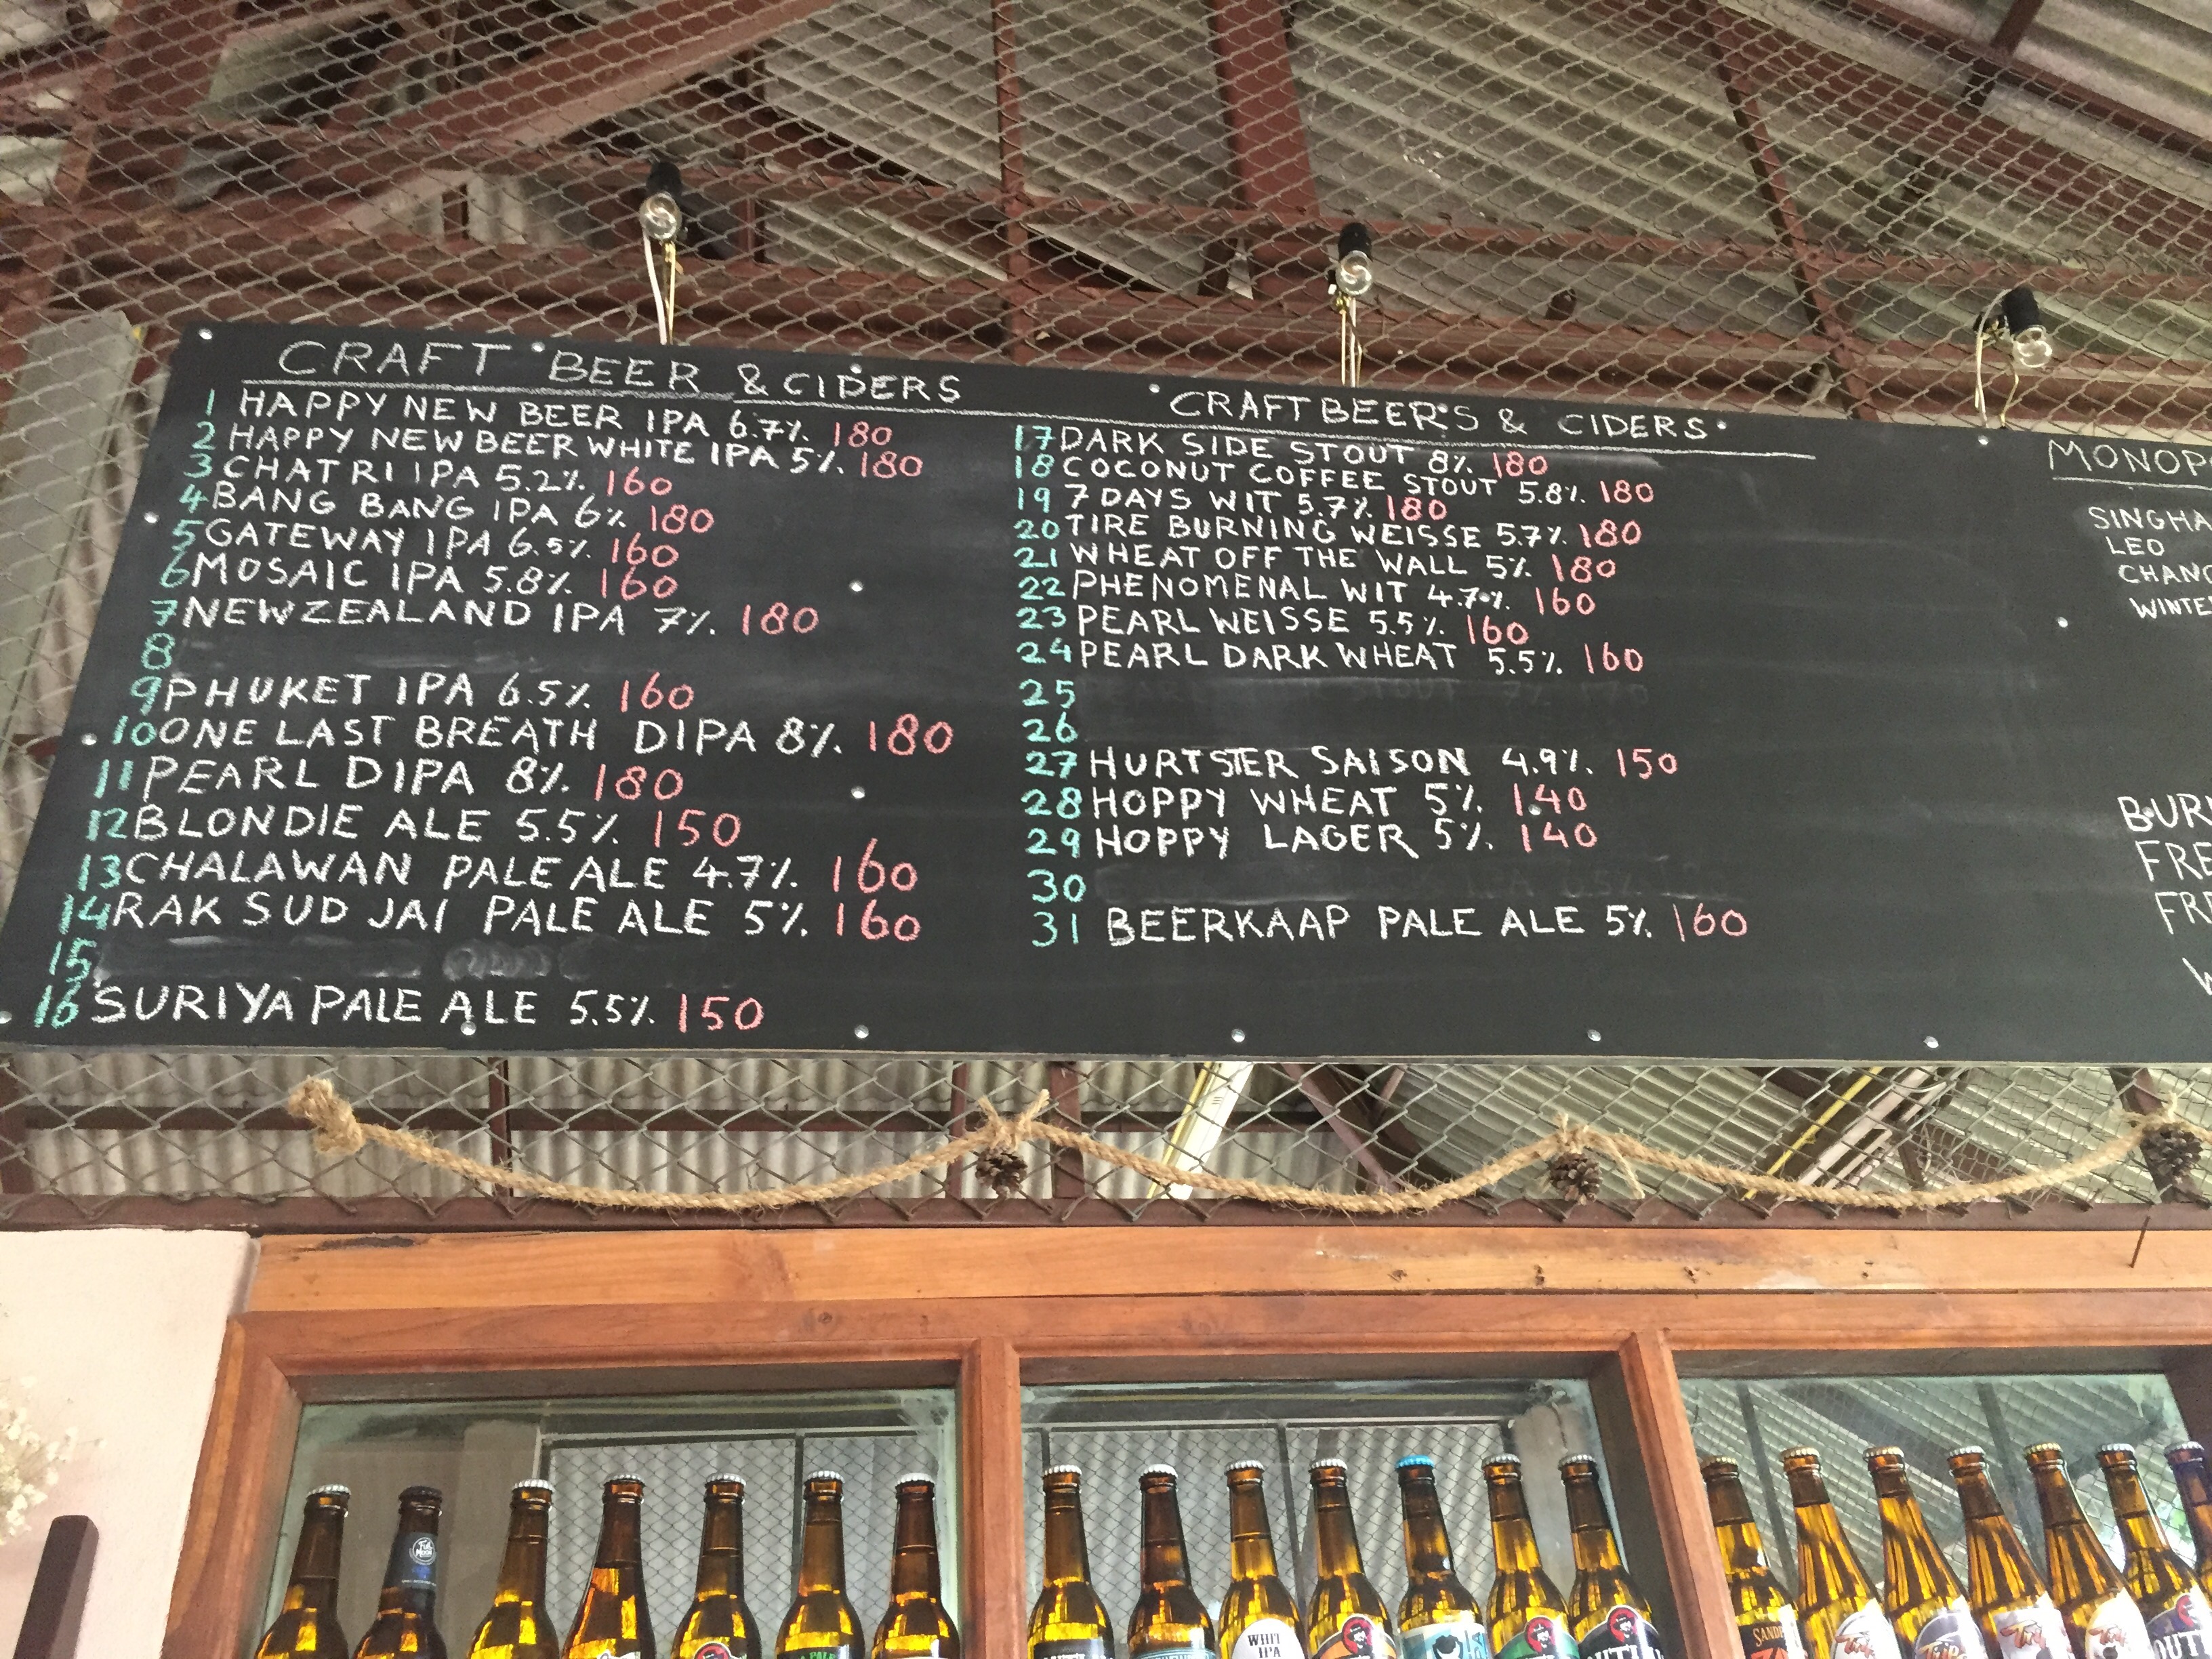 CRAFT BEER & CIDERS
1 HAPPY NEW BEER IPA 6.7% 180
2 HAPPY NEW BEER WHITE IPA 5% 180
3 CHATRI IPA 5.2% 160
4 BANG BANG IPA 6% 180
5 GATEWAY IPA 6.5% 160
6 MOSAIC IPA 5.8% 160
7 NEWZEALAND IPA 7% 180
8
9 PHUKET IPA 6.5% 160
10 ONE LAST BREATH DIPA 8% 180
11 PEARL DIPA 8% 180
12 BLONDIE ALE 5.5% 150
13 CHALAWAN PALE ALE 4.7% 160
14 RAK SUD JAI PALE ALE 5% 160
15
16 SURIYA PALE ALE 5.5% 150
CRAFT BEER'S & CIDERS
17 DARK SIDE STOUT 8% 180
18 COCONUT COFFEE STOUT 5.8% 180
19 7 DAYS WIT 5.7% 180
20 TIRE BURNING WEISSE 5.7% 180
21 WHEAT OFF THE WALL 5% 180
22 PHENOMENAL WIT 4.7% 160
23 PEARL WEISSE 5.5% 160
24 PEARL DARK WHEAT 5.5% 160
25
26
27 HURTSTER SAISON 4.9% 150
28 HOPPY WHEAT 5% 140
29 HOPPY LAGER 5% 140
30
31 BEERKAAP PALE ALE 5% 160
MONOP
SINGHA
LEO
CHANG
WINTE
BUR
FRE
FR
W
WHIT
IPA